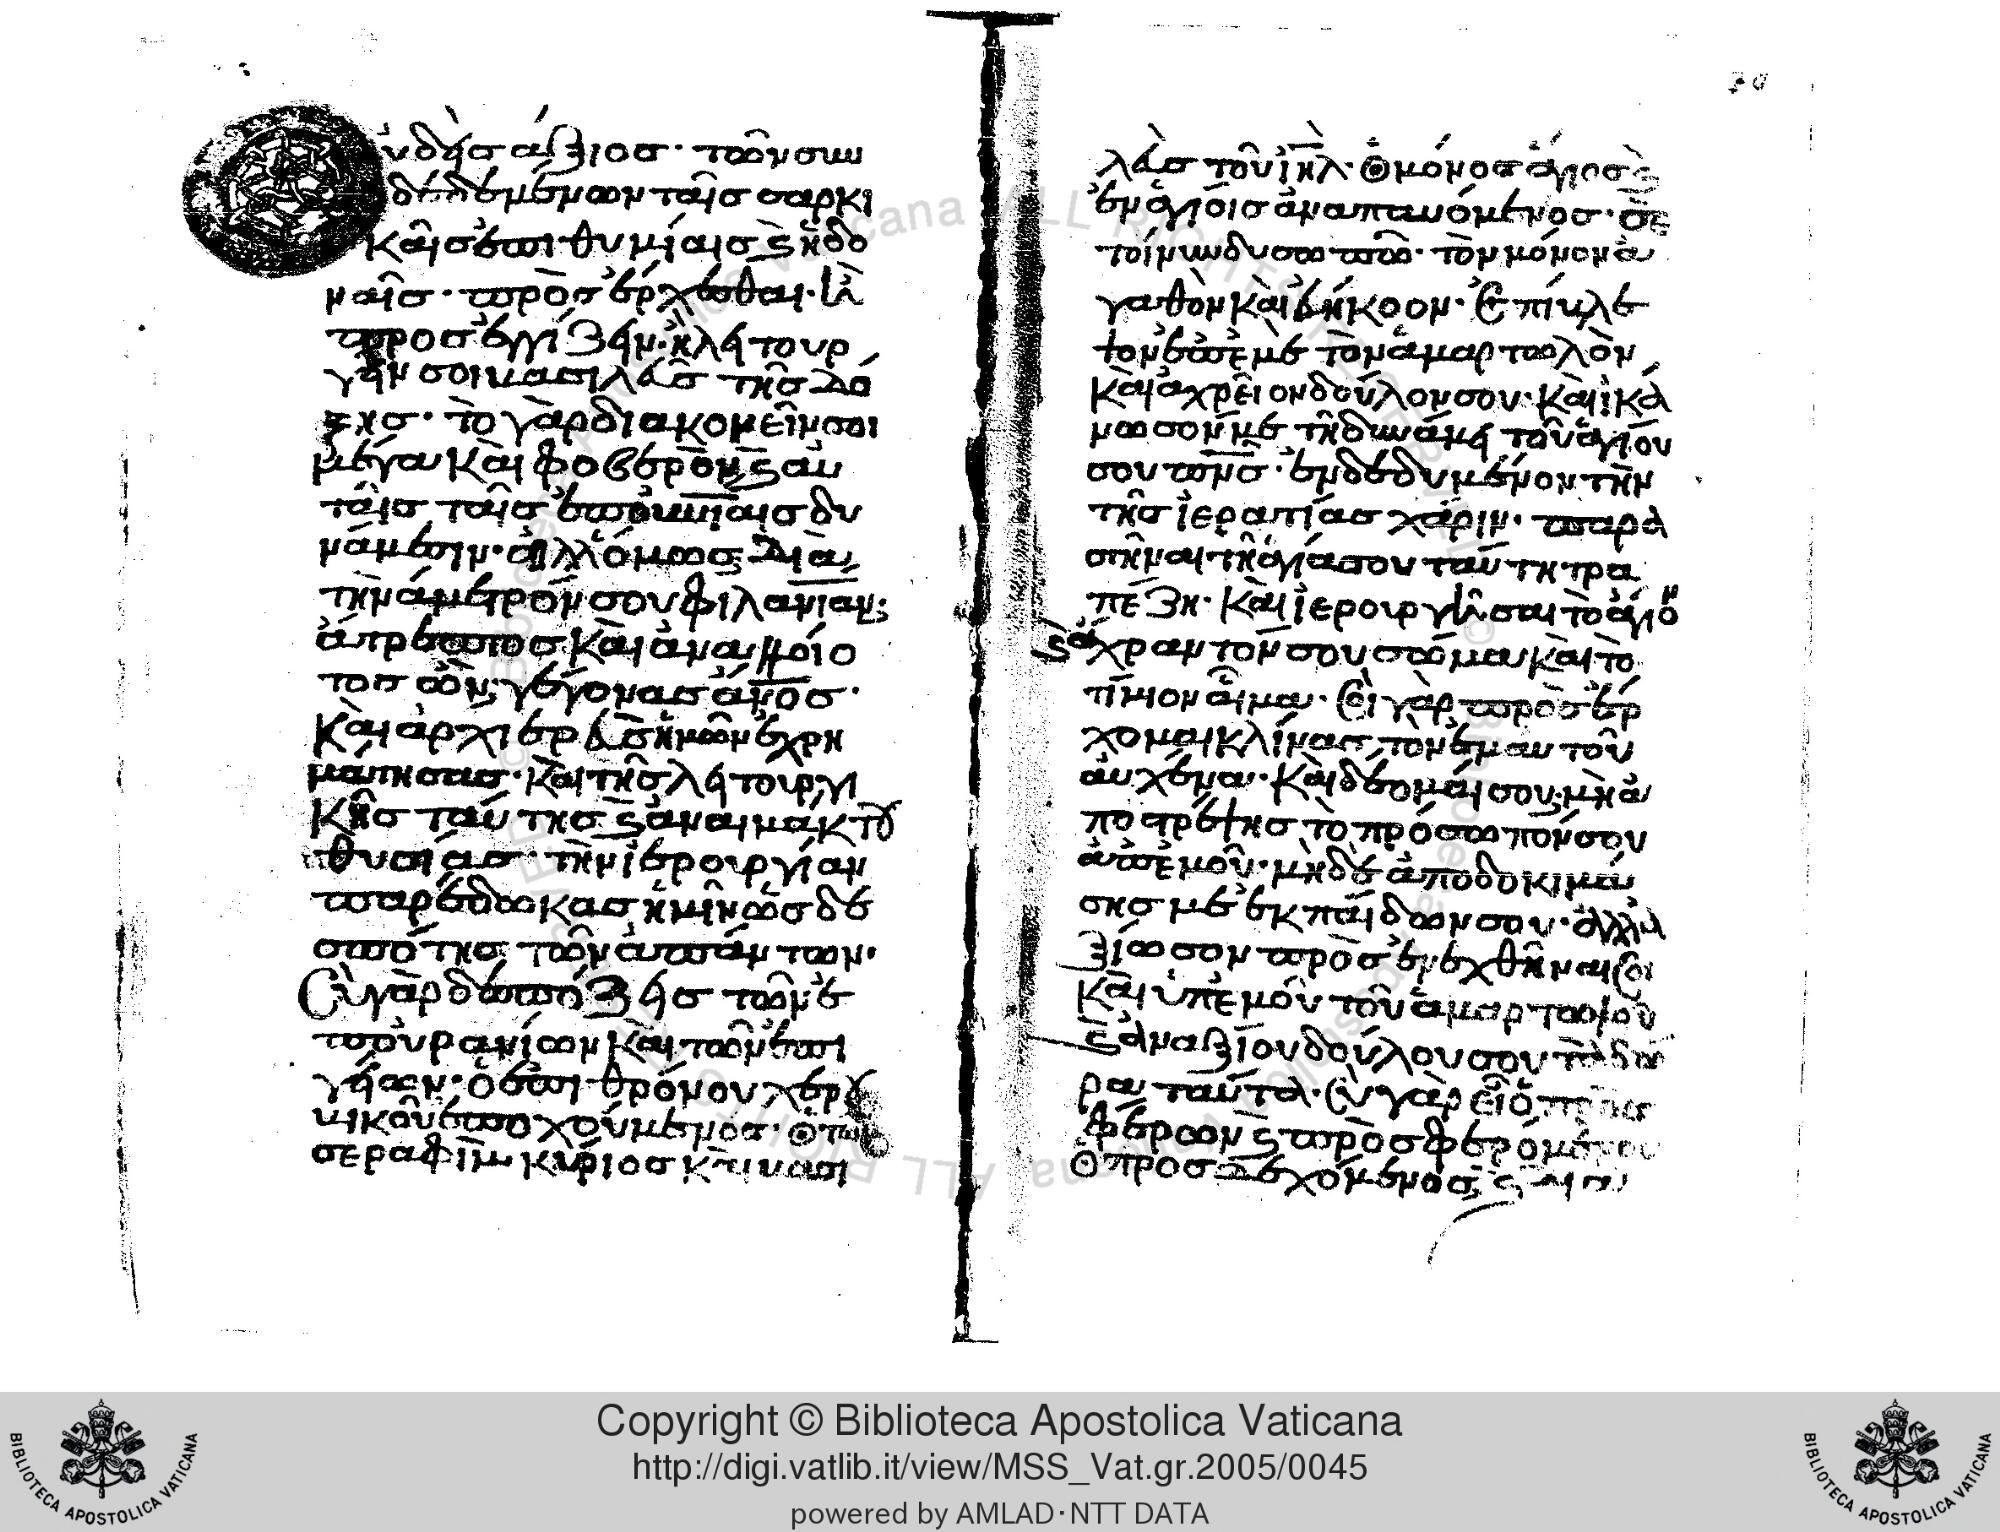 Οὐδεὶς ἄξιος· τῶν συν
δεδεμένων ταῖς σαρκι
καῖς ἐπιθυμίαις ϗ ἡδο
ναῖς· προσέρχεσθαι· ἢ
προσεγγίζειν· ἢ λειτουρ
γεῖν σοι βασιλεῦ τῆς δό
ξης· τὸ γὰρ διακονεῖν σοι
μέγα καὶ φοβερὸν ϗ αὐ
ταῖς ταῖς ἐπουνίαις δυ
νάμεσιν· ἀλλ' ὅμως διὰ
τὴν ἄμετρόν σου φιλανίαν·
ἄτρεπτος καὶ ἀναλλοίω
τος γέγονας ἄνος·
καὶ ἀρχιερεὺς ἡμῶν ἐχρη
μάτησας· καὶ τῆς λειτουργι
κῆς ταύτης ϗ ἀναιμάκτου
θυσίας· τὴν ἱερουργίαν
παρέδωκας ἡμῖν ὡς δε
σπότης τῶν ἁπάντων·
Σὺ γὰρ δεσπόζεις τῶν ἐ
πουρανίων καὶ τῶν ἐπι
γείων· ὁ ἐπὶ θρόνου χερου
βικοῦ ἐποχούμενος· ὁ τῶν
σεραφὶμ κύριος κ βασι
λεὺς τοῦ ιηλ· ὁ μόνος ἅγιος ϗ
ἐν ἁγίοις ἀναπαυόμενος· σὲ
τοίνυν δυσωπῶ· τὸν μόνον ἀ
γαθὸν καὶ εὐήκοον· Ἐπίβλε
ψον ἐπ' ἐμὲ τὸν ἁμαρτωλὸν
καὶ ἀχρεῖον δοῦλον σου· καὶ ἱκά
νωσόν με τῇ δυνάμει τοῦ ἁγίου
σου πνς· ἐνδεδυμένον τὴν
τῆς ἱερατίας χάριν· παρα
στῆναι τῇ ἁγία σου ταύτη τρα
πέζη· καὶ ἱερουργῆσαι τὸ ἅγιον
ϗ ἄχραντόν σου σῶμα καὶ τὸ
τίμιον αἷμα· Σοὶ γὰρ προσέρ
χομαι κλίνας τὸν ἐμαυτοῦ
αὐχένα· καὶ δέομαί σου· μὴ ἀ
ποστρέψης τὸ πρόσωπόν σου
ἀπ' ἐμοῦ· μὴδὲ ἀποδοκιμά
σης με ἐκ παίδων σου· ἀλλ' ἀ
ξίωσον προσενεχθῆναι σοι
καὶ ὑπ' ἐμοῦ τοῦ ἁμαρτωλοῦ
ϗ ἀναξίου δούλου σου τὰ δῶ
ρα ταῦτα· Σὺ γὰρ εἶ ὁ προσ
φέρων ϗ προσφερόμενος
ὁ προσδεχόμενος ϗ